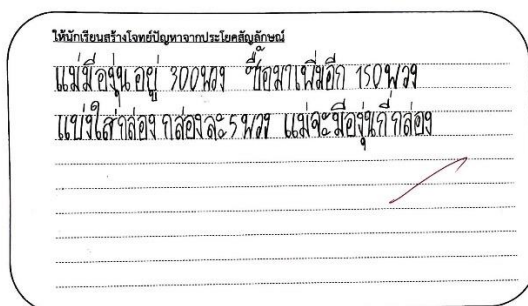 ให้นักเรียนสร้างโจทย์ปัญหาจากประโยคสัญลักษณ์
แม่มีองุ่นอยู่ 300 พวง ซื้อมาเพิ่มอีก 150 พวง
แบ่งใส่กล่อง กล่องละ 5 พวง แม่จะมีองุ่นกี่กล่อง